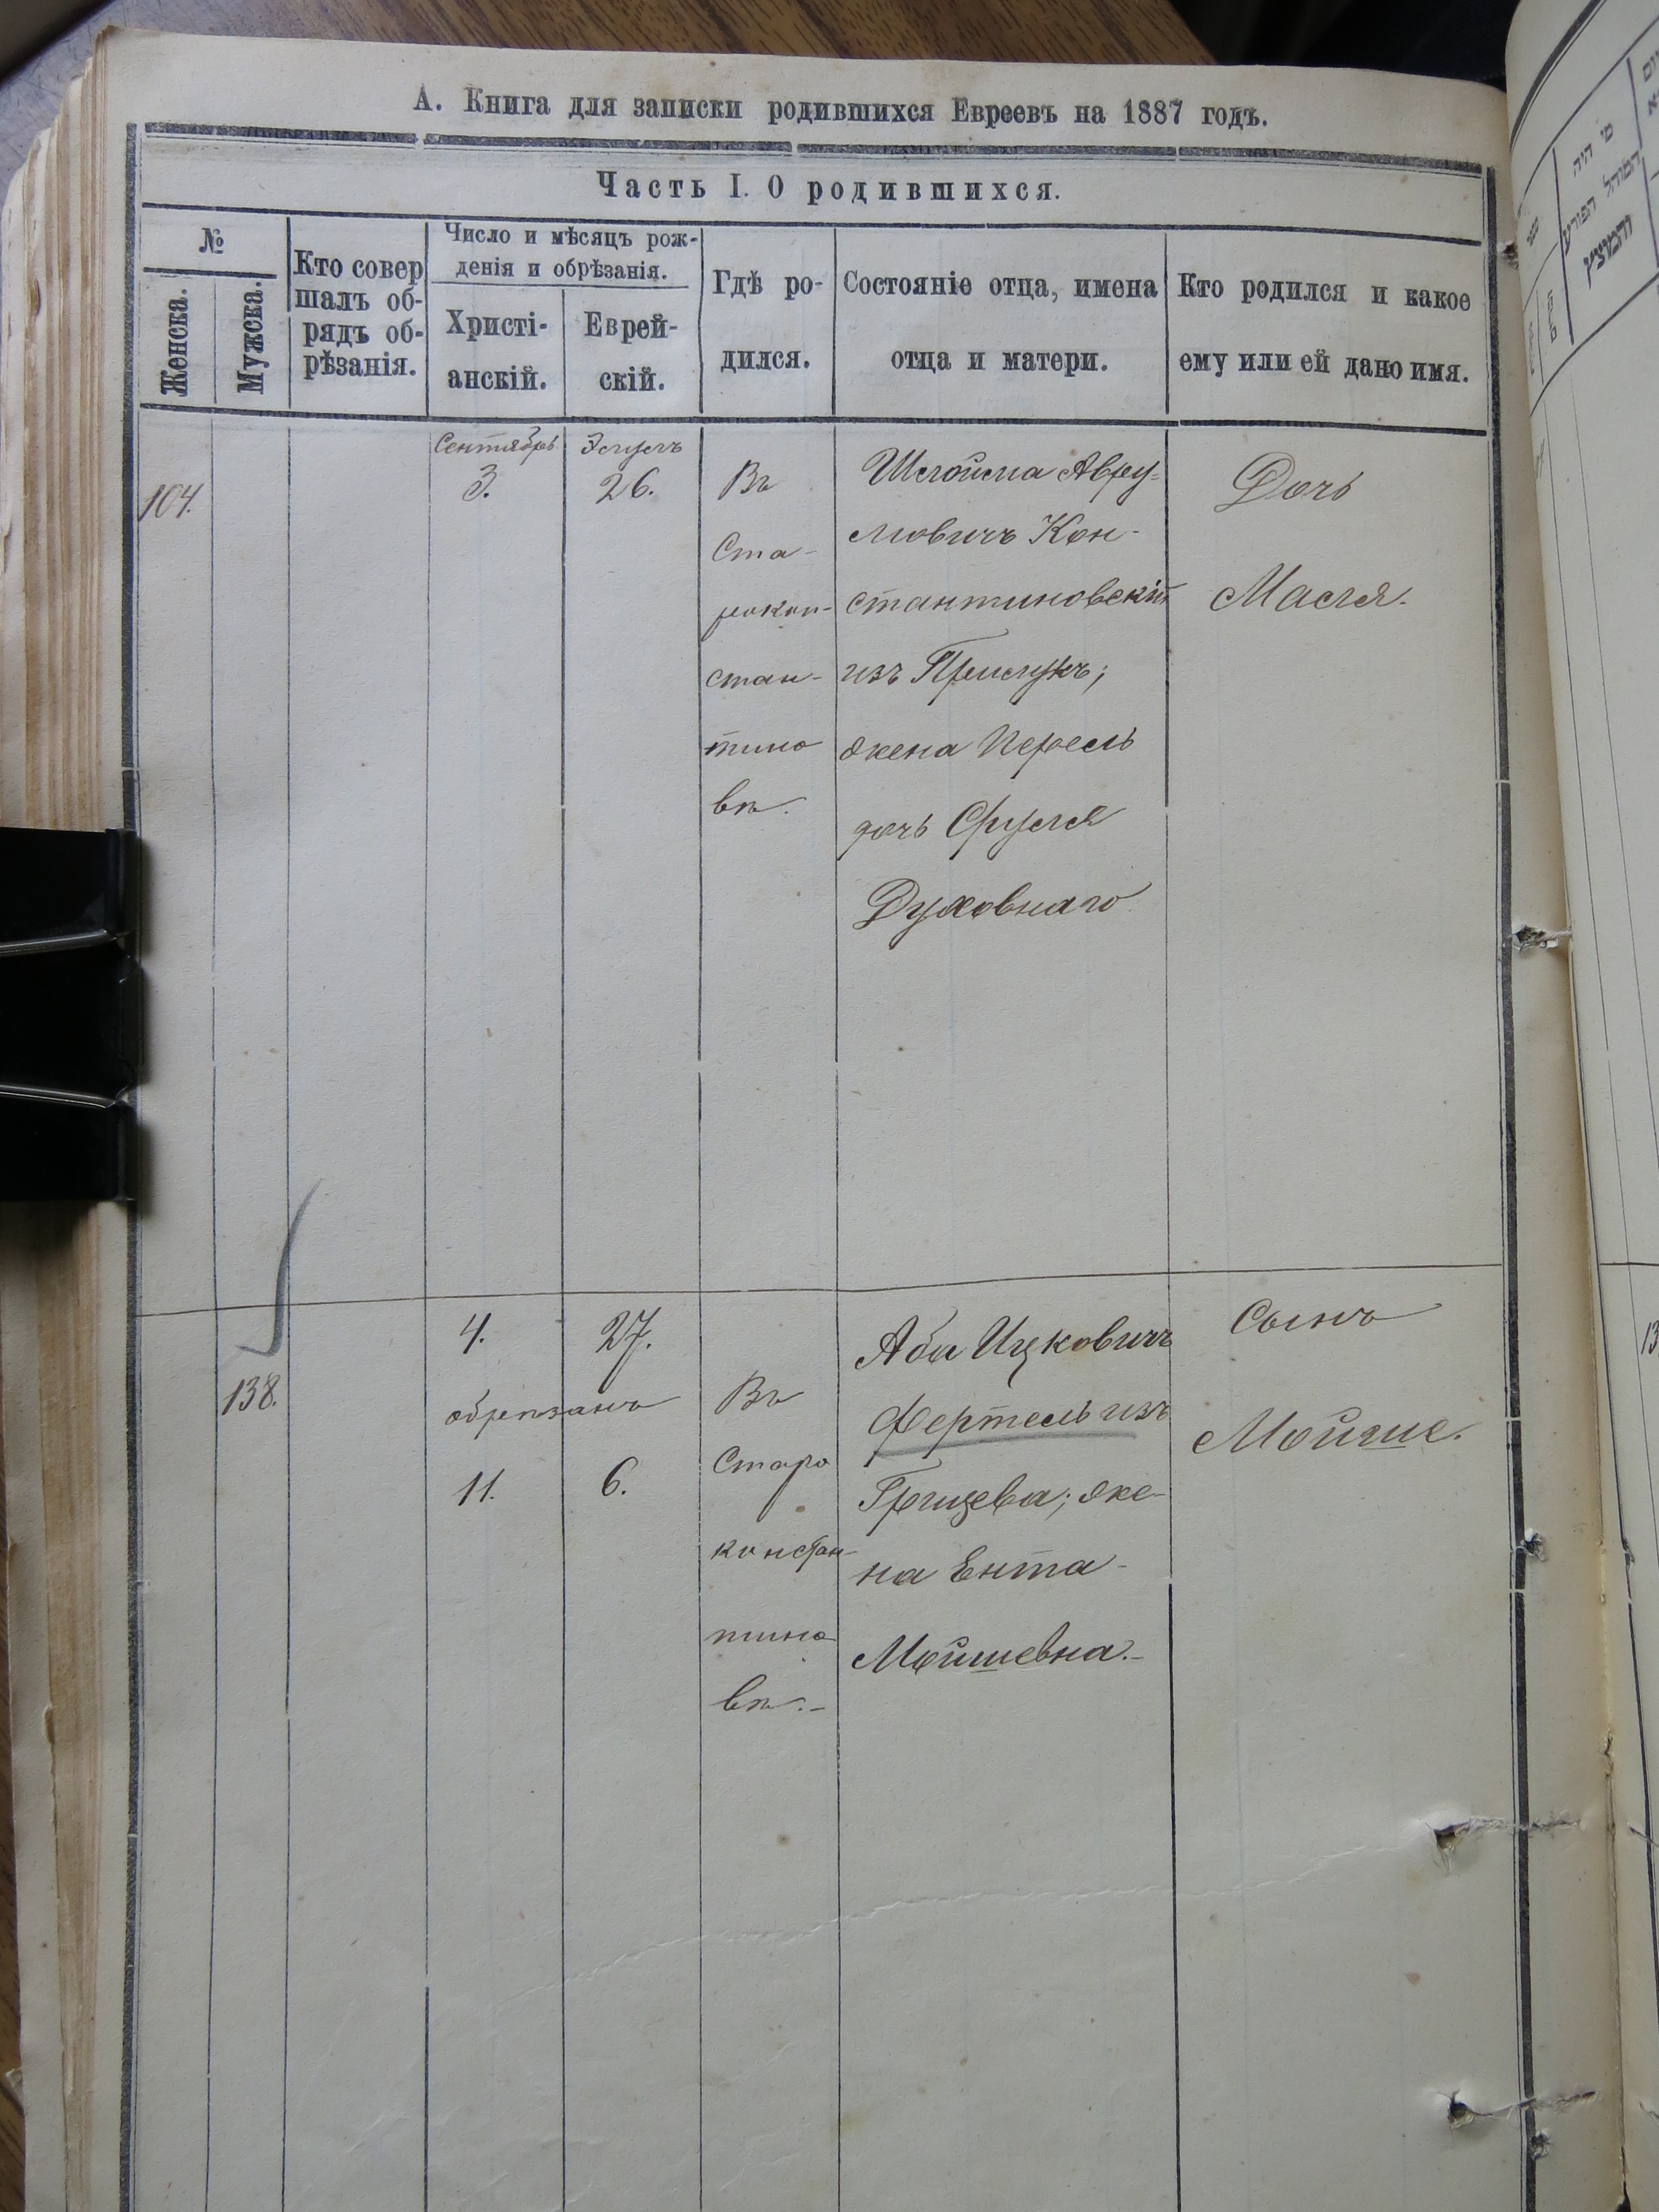 А. Книга для записки родившихся Евреевъ на 1887 годъ.
Часть I. О родившихся.
№
Женска.
Мужска.
Кто совер
шалъ об-
рядъ об-
рѣзанія.
Число и мѣсяцъ рож-
денія и обрѣзанія.
Христі-
анскій.
Еврей-
скій.
Гдѣ ро-
дился.
Состояніе отца, имена
отца и матери.
Кто родился и какое
ему или ей дано имя.
104.
Сентябрь
3.
Элулъ
26.
Въ
Ста-
рокон-
стан-
тино
вѣ.
Шлойма Авру-
мовичъ Кон-
стантиновскій
изъ
жена Перель
дочь Сруля
Духовнаго
Дочь
Масля.
138.
4.
27.
обрѣзанъ
11.
6.
Въ
Старо
констан-
тино
вѣ.-
Аба Ицковичъ
Фертель изъ
Грицева; же-
на Ента-
Мойшевна.-
Сынъ
Мойше.
מי היה
המוהל הפורע
והמוצץ
13